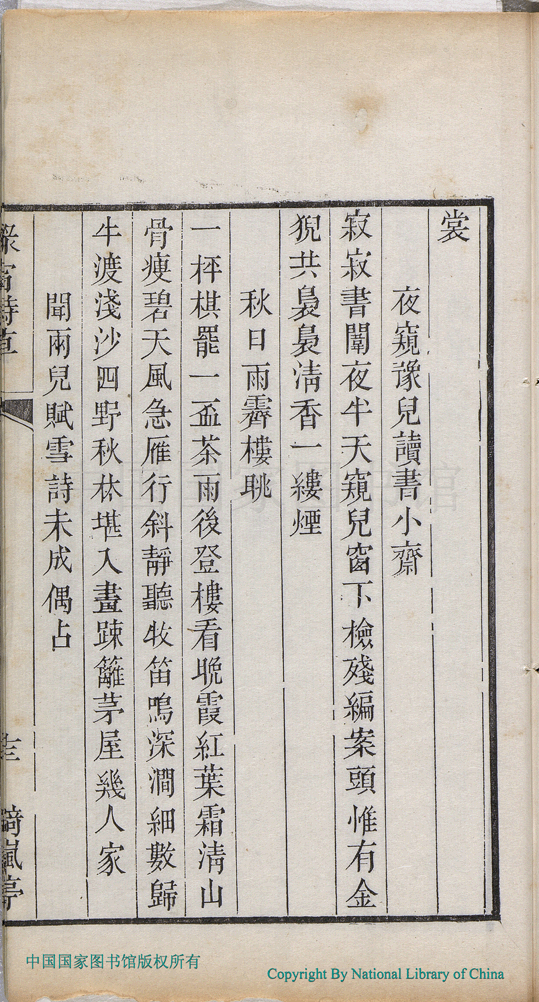 裳
夜窺豫兒讀書小齋
寂寂書闈夜半天窺兒窗下檢殘編案頭惟有金
猊共裊裊清香一縷煙
秋日雨霽樓眺
一枰棋罷一盃茶雨後登樓看晚霞紅葉霜清山
骨瘦碧天風急雁行斜靜聽牧笛鳴深澗細數歸
牛渡淺沙四野秋林堪入畫踈籬茅屋幾人家
聞兩兒賦雪詩未成偶占
中国国家图书馆版权所有
Copyright By National Library of China